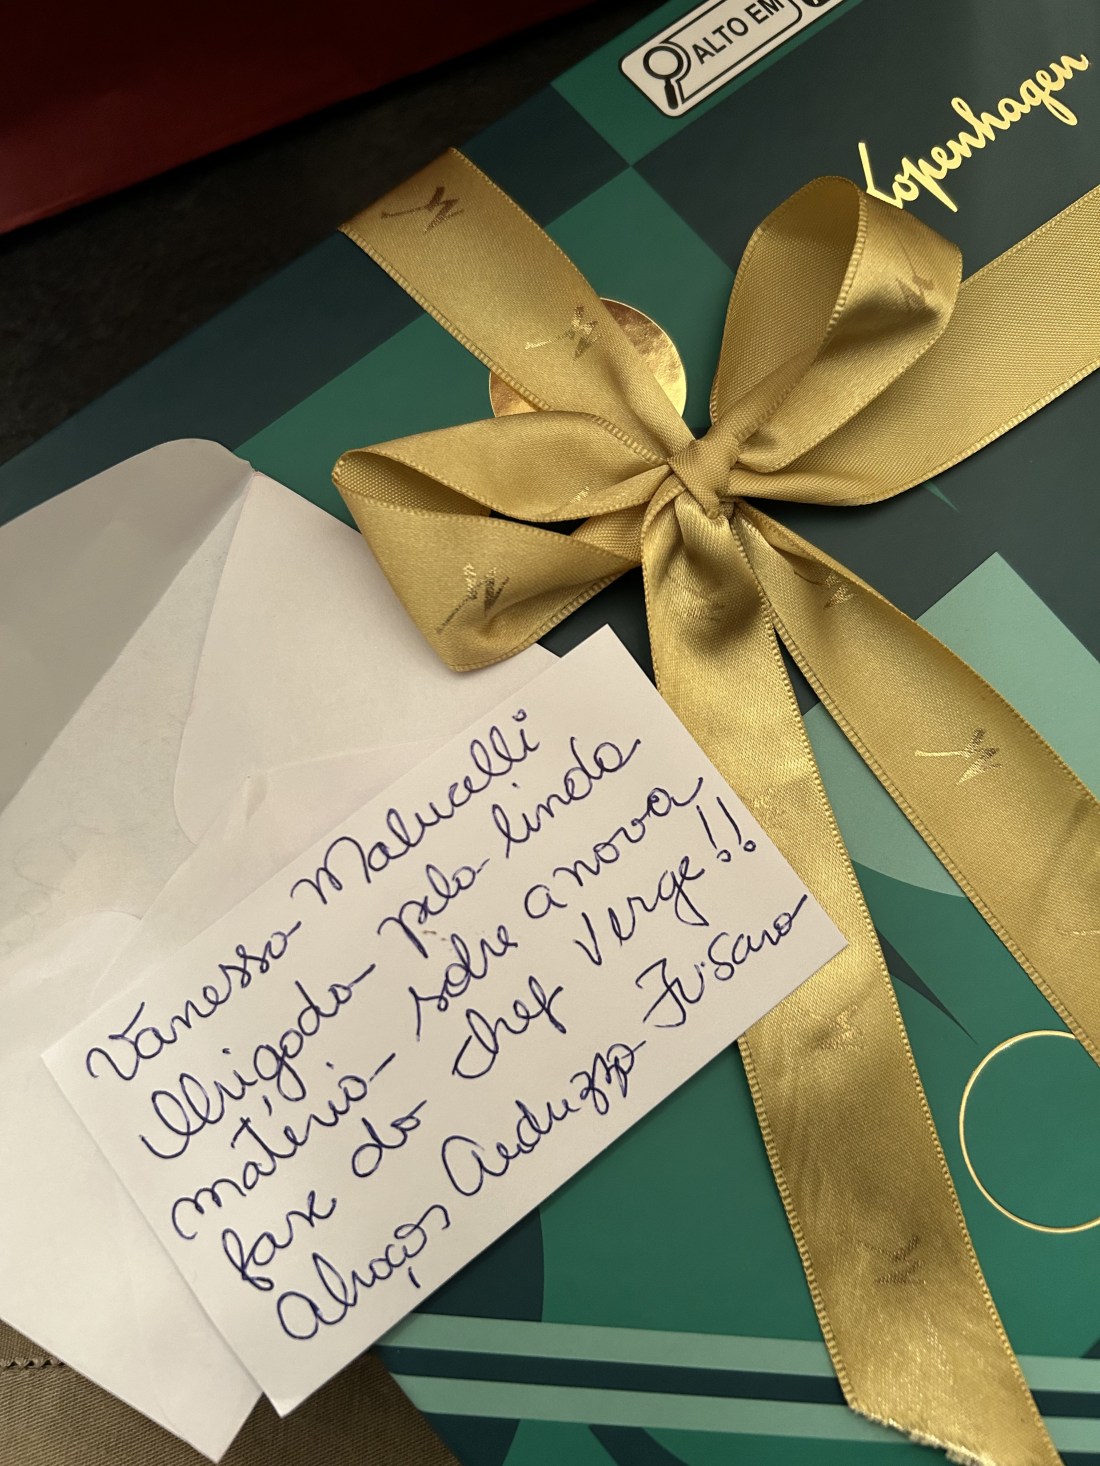 ALTO EM
Kopenhagen
Vanessa Malucelli
Obrigada pela linda
matéria sobre a nova
fase do chef Verge!!
Abraços Andrezza Fusaro